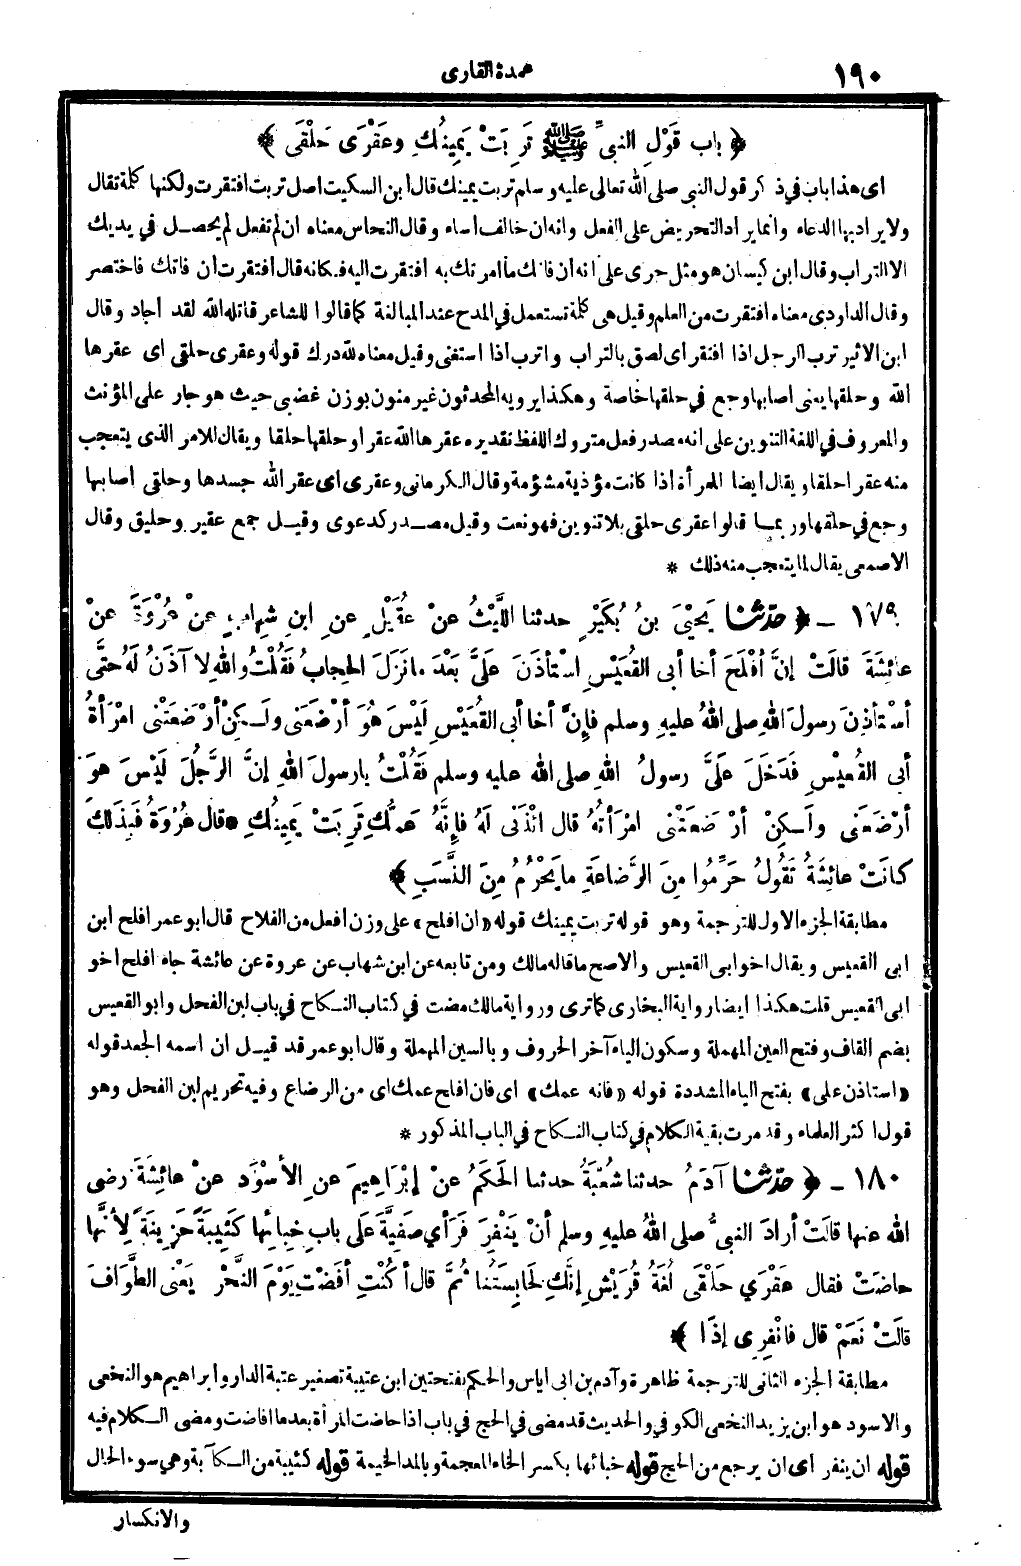 ١٩٠
عمدة القارى
﴿ باب قَوْلِ النبيِّ ﷺ تَرِبَتْ يَمِينُكِ وعَقْرَى حَلْقَى ﴾
اى هذا باب فى ذكر قول النبى صلى الله تعالى عليه وسلم تربت يمينك قال ابن السكيت اصل تربت افتقرت ولكنها كلمة تقال
ولا يراد بها الدعاء وانما يراد التحريض على الفعل وانه ان خالف أساء وقال النحاس معناه ان لم تفعل لم يحصل في يديك
الا التراب وقال ابن كيسان هو مثل جرى على انه ان فاتك ما أمرتك به افتقرت اليه فكانه قال افتقرت أن فاتك فاختصر
وقال الداودى معناه افتقرت من العلم وقيل هى كلمة تستعمل في المدح عند المبالغة كما قالوا للشاعر قاتله الله لقد أجاد وقال
ابن الاثير ترب الرجل اذا افتقر اى لصق بالتراب واترب اذا استغنى وقيل معناه لله درك قوله وعقرى حلقى اى عقرها
الله وحلقها يعنى اصابها وجع في حلقها خاصة وهكذا يرويه المحدثون غير منون بوزن غضبى حيث هو جار على المؤنث
والمعروف في اللغة التنوين على انه مصدر فعل متروك اللفظ تقديره عقرها الله عقرا وحلقها حلقا ويقال للامر الذى يتعجب
منه عقرا حلقا ويقال ايضا للمرأة اذا كانت مؤذية مشؤمة وقال الكرمانى وعقرى اى عقر الله جسدها وحلقى أصابها
وجع في حلقها وربما قالوا عقرى حلقى بلا تنوين فهو نعت وقيل مصدر كدعوى وقيل جمع عقير وحليق وقال
الاصمعى يقال لما يتعجب منه ذلك *
١٧٩ ـ ﴿ حدّثنا يَحْيَى بنُ بُكَيْرٍ حدثنا اللَّيْثُ عنْ عُقَيْلٍ عنِ ابنِ شِهابٍ عنْ عُرْوَةَ عنْ
عائِشَةَ قالَتْ إنَّ أفْلَحَ أخا أبى القُعَيْسِ اسْتأذَنَ عَلَىَّ بَعْدَ ما نَزَلَ الحِجابُ فَقُلْتُ واللهِ لا آذَنُ لَهُ حتَّى
أسْتأذِنَ رسولَ اللهِ صلى اللهُ عليهِ وسلم فإنَّ أخا أبى القُعَيْسِ لَيْسَ هُوَ أرْضَعَنى ولَـكِنْ أرْضَعَتْنى امْرَأةُ
أبى القُعَيْسِ فَدَخَلَ عَلَىَّ رسولُ اللهِ صلى الله عليه وسلم فَقُلْتُ يارسولَ اللهِ إنَّ الرَّجُلَ لَيْسَ هوَ
أرْضَعَنى ولَـكِنْ أرْضَعَتْنى امْرَأتُهُ قال ائْذَنى لَهُ فإنَّهُ عَمُّكِ تَرِبَتْ يَمِينُكِ * قال عُرْوَةُ فَبِذَلِكَ
كانَتْ عائِشَةُ تَقُولُ حَرِّمُوا مِنَ الرَّضاعَةِ ما يَحْرُمُ مِنَ النَّسَبِ ﴾
مطابقة الجزء الاول للترجمة وهو قوله تربت يمينك قوله «ان افلح» على وزن افعل من الفلاح قال ابو عمر افلح ابن
ابى القعيس ويقال اخو ابى القعيس والاصح ما قاله مالك ومن تابعه عن ابن شهاب عن عروة عن عائشة جاء افلح اخو
ابى القعيس قلت هكذا ايضا رواية البخارى كما ترى ورواية مالك مضت في كتاب النـكاح في باب لبن الفحل وابو القعيس
بضم القاف وفتح العين المهملة وسكون الياء آخر الحروف وبالسين المهملة وقال ابو عمر قد قيل ان اسمه الجعد قوله
«استاذن على» بفتح الياء المشددة قوله «فانه عمك» اى فان افلح عمك اى من الرضاع وفيه تحريم لبن الفحل وهو
قول اكثر العلماء وقد مرت بقية الكلام في كتاب النـكاح في الباب المذكور *
١٨٠ ـ ﴿ حدّثنا آدَمُ حدثنا شُعْبَةُ حدثنا الحَكَمُ عنْ إبْرَاهِيمَ عنِ الأسْوَدِ عنْ عائِشَةَ رضى
الله عنها قالَتْ أرادَ النبىُّ صلى اللهُ عليهِ وسلم أنْ يَنْفِرَ فَرَأى صَفِيَّةَ عَلَى بابِ خِبائِها كَئِيبَةً حَزِينَةً لِأنَّها
حاضَتْ فقال عَقْرَى حَلْقَى لُغَةُ قُرَيْشٍ إنَّكِ لَحابِسَتُنا ثُمَّ قال أكُنْتِ أفَضْتِ يَوْمَ النَّحْرِ يَعْنى الطَّوَافَ
قالَتْ نَعَمْ قال فانْفِرِى إذًا ﴾
مطابقة الجزء الثانى للترجمة ظاهرة وآدم بن ابى اياس والحكم بفتحتين ابن عتيبة تصغير عتبة الدار وابراهيم هو النخعى
والاسود هو ابن يزيد النخعى الكوفى والحديث قد مضى في الحج في باب اذا حاضت المرأة بعد ما افاضت ومضى الـكلام فيه
قوله ان ينفر اى ان يرجع من الحج قوله خبائها بكسر الخاء المعجمة وبالمد الخيمة قوله كئيبة من الـكآبة وهى سوء الحال
والانكسار